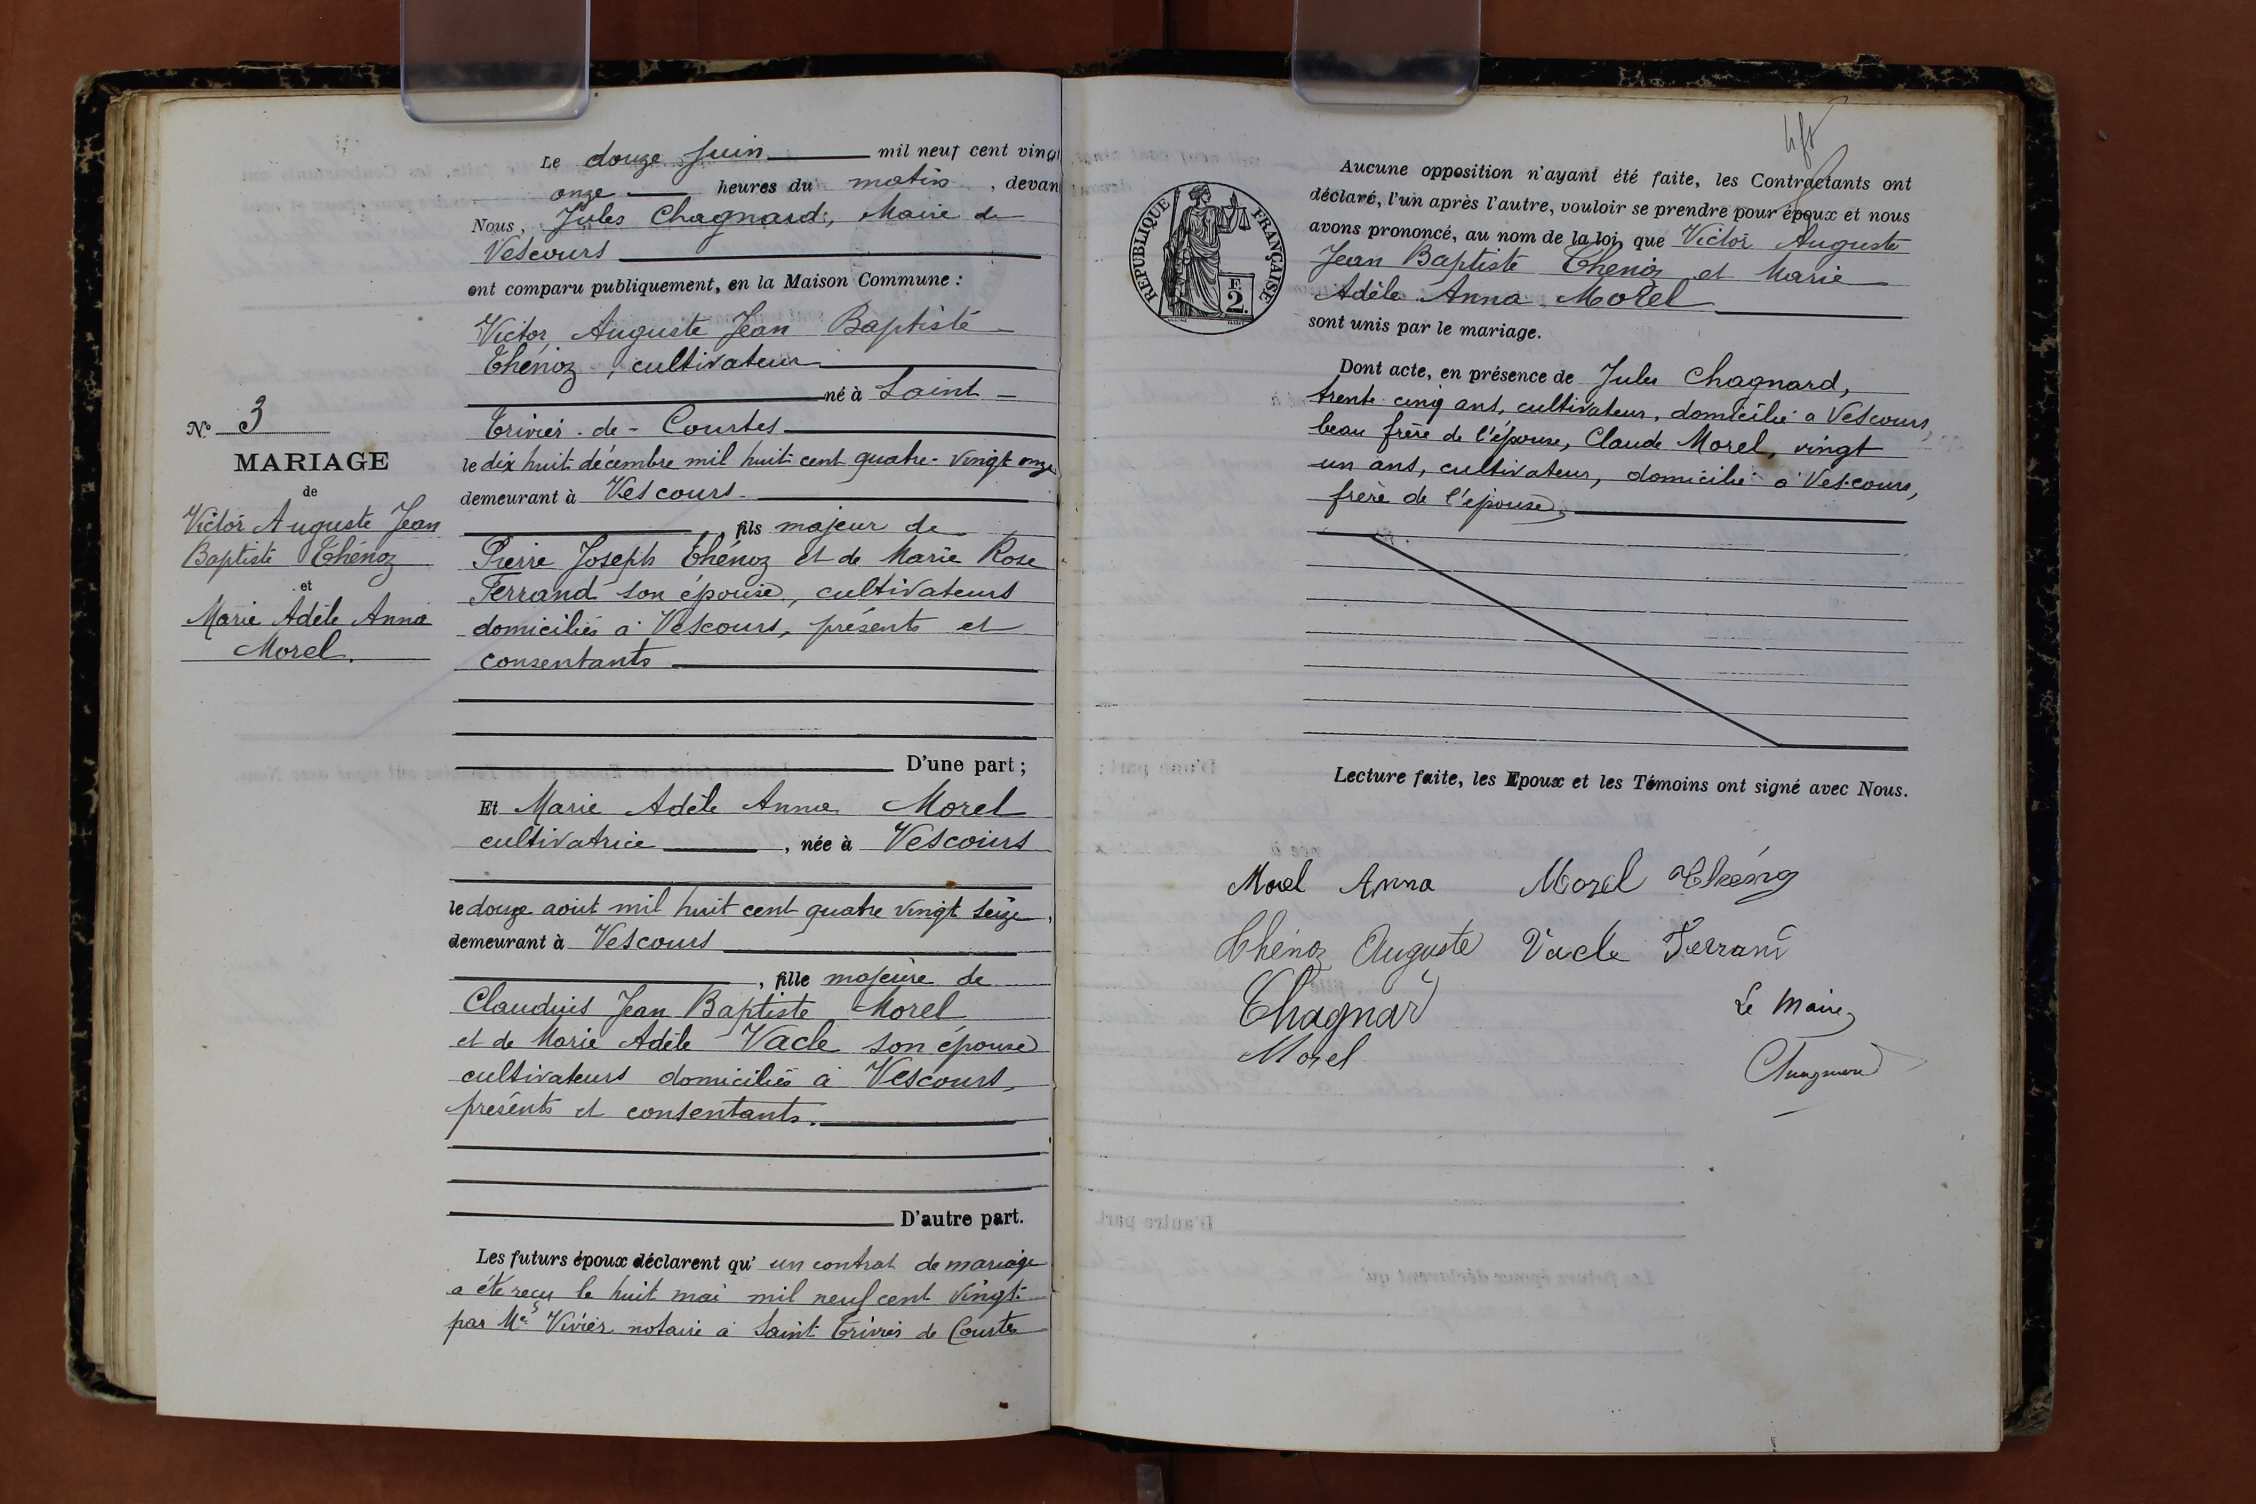 Le douze Juin mil neuf cent vingt
onze heures du matin, devan
Nous, Jules Chagnard, Maire de
Vescours
ont comparu publiquement, en la Maison Commune :
Victor Auguste Jean Baptiste
Thénoz, cultivateur
né à Saint-
Trivier-de-Courtes
le dix huit décembre mil huit cent quatre-vingt onze
demeurant à Vescours
fils majeur de
Pierre Joseph Thénoz et de Marie Rose
Ferrand son épouse, cultivateurs
domiciliés à Vescours, présents et
consentants
D'une part ;
Et Marie Adèle Anna Morel
cultivatrice, née à Vescours
le douze aout mil huit cent quatre vingt seize,
demeurant à Vescours
, fille majeure de
Claudius Jean Baptiste Morel
et de Marie Adèle Vacle son épouse
cultivateurs domiciliés à Vescours,
présents et consentants.
D'autre part.
Les futurs époux déclarent qu'un contrat de mariage
a été reçu le huit mai mil neuf cent vingt
par Me Vivier notaire à Saint Trivier de Courtes
N° 3
MARIAGE
de
Victor Auguste Jean
Baptiste Thénoz
et
Marie Adèle Anna
Morel.
RÉPUBLIQUE FRANÇAISE
F.
2.
Aucune opposition n'ayant été faite, les Contractants ont
déclaré, l'un après l'autre, vouloir se prendre pour époux et nous
avons prononcé, au nom de la loi, que Victor Auguste
Jean Baptiste Thenoz et Marie
Adèle Anna Morel
sont unis par le mariage.
Dont acte, en présence de Jules Chagnard,
trente cinq ans, cultivateur, domicilié à Vescours,
beau frère de l'épouse, Claude Morel, vingt
un ans, cultivateur, domicilié à Vescours,
frère de l'épouse,
Lecture faite, les Epoux et les Témoins ont signé avec Nous.
Morel Anna Morel Thénoz
Thénoz Auguste Vacle Ferrand
Chagnard Le Maire
Morel Chagnard